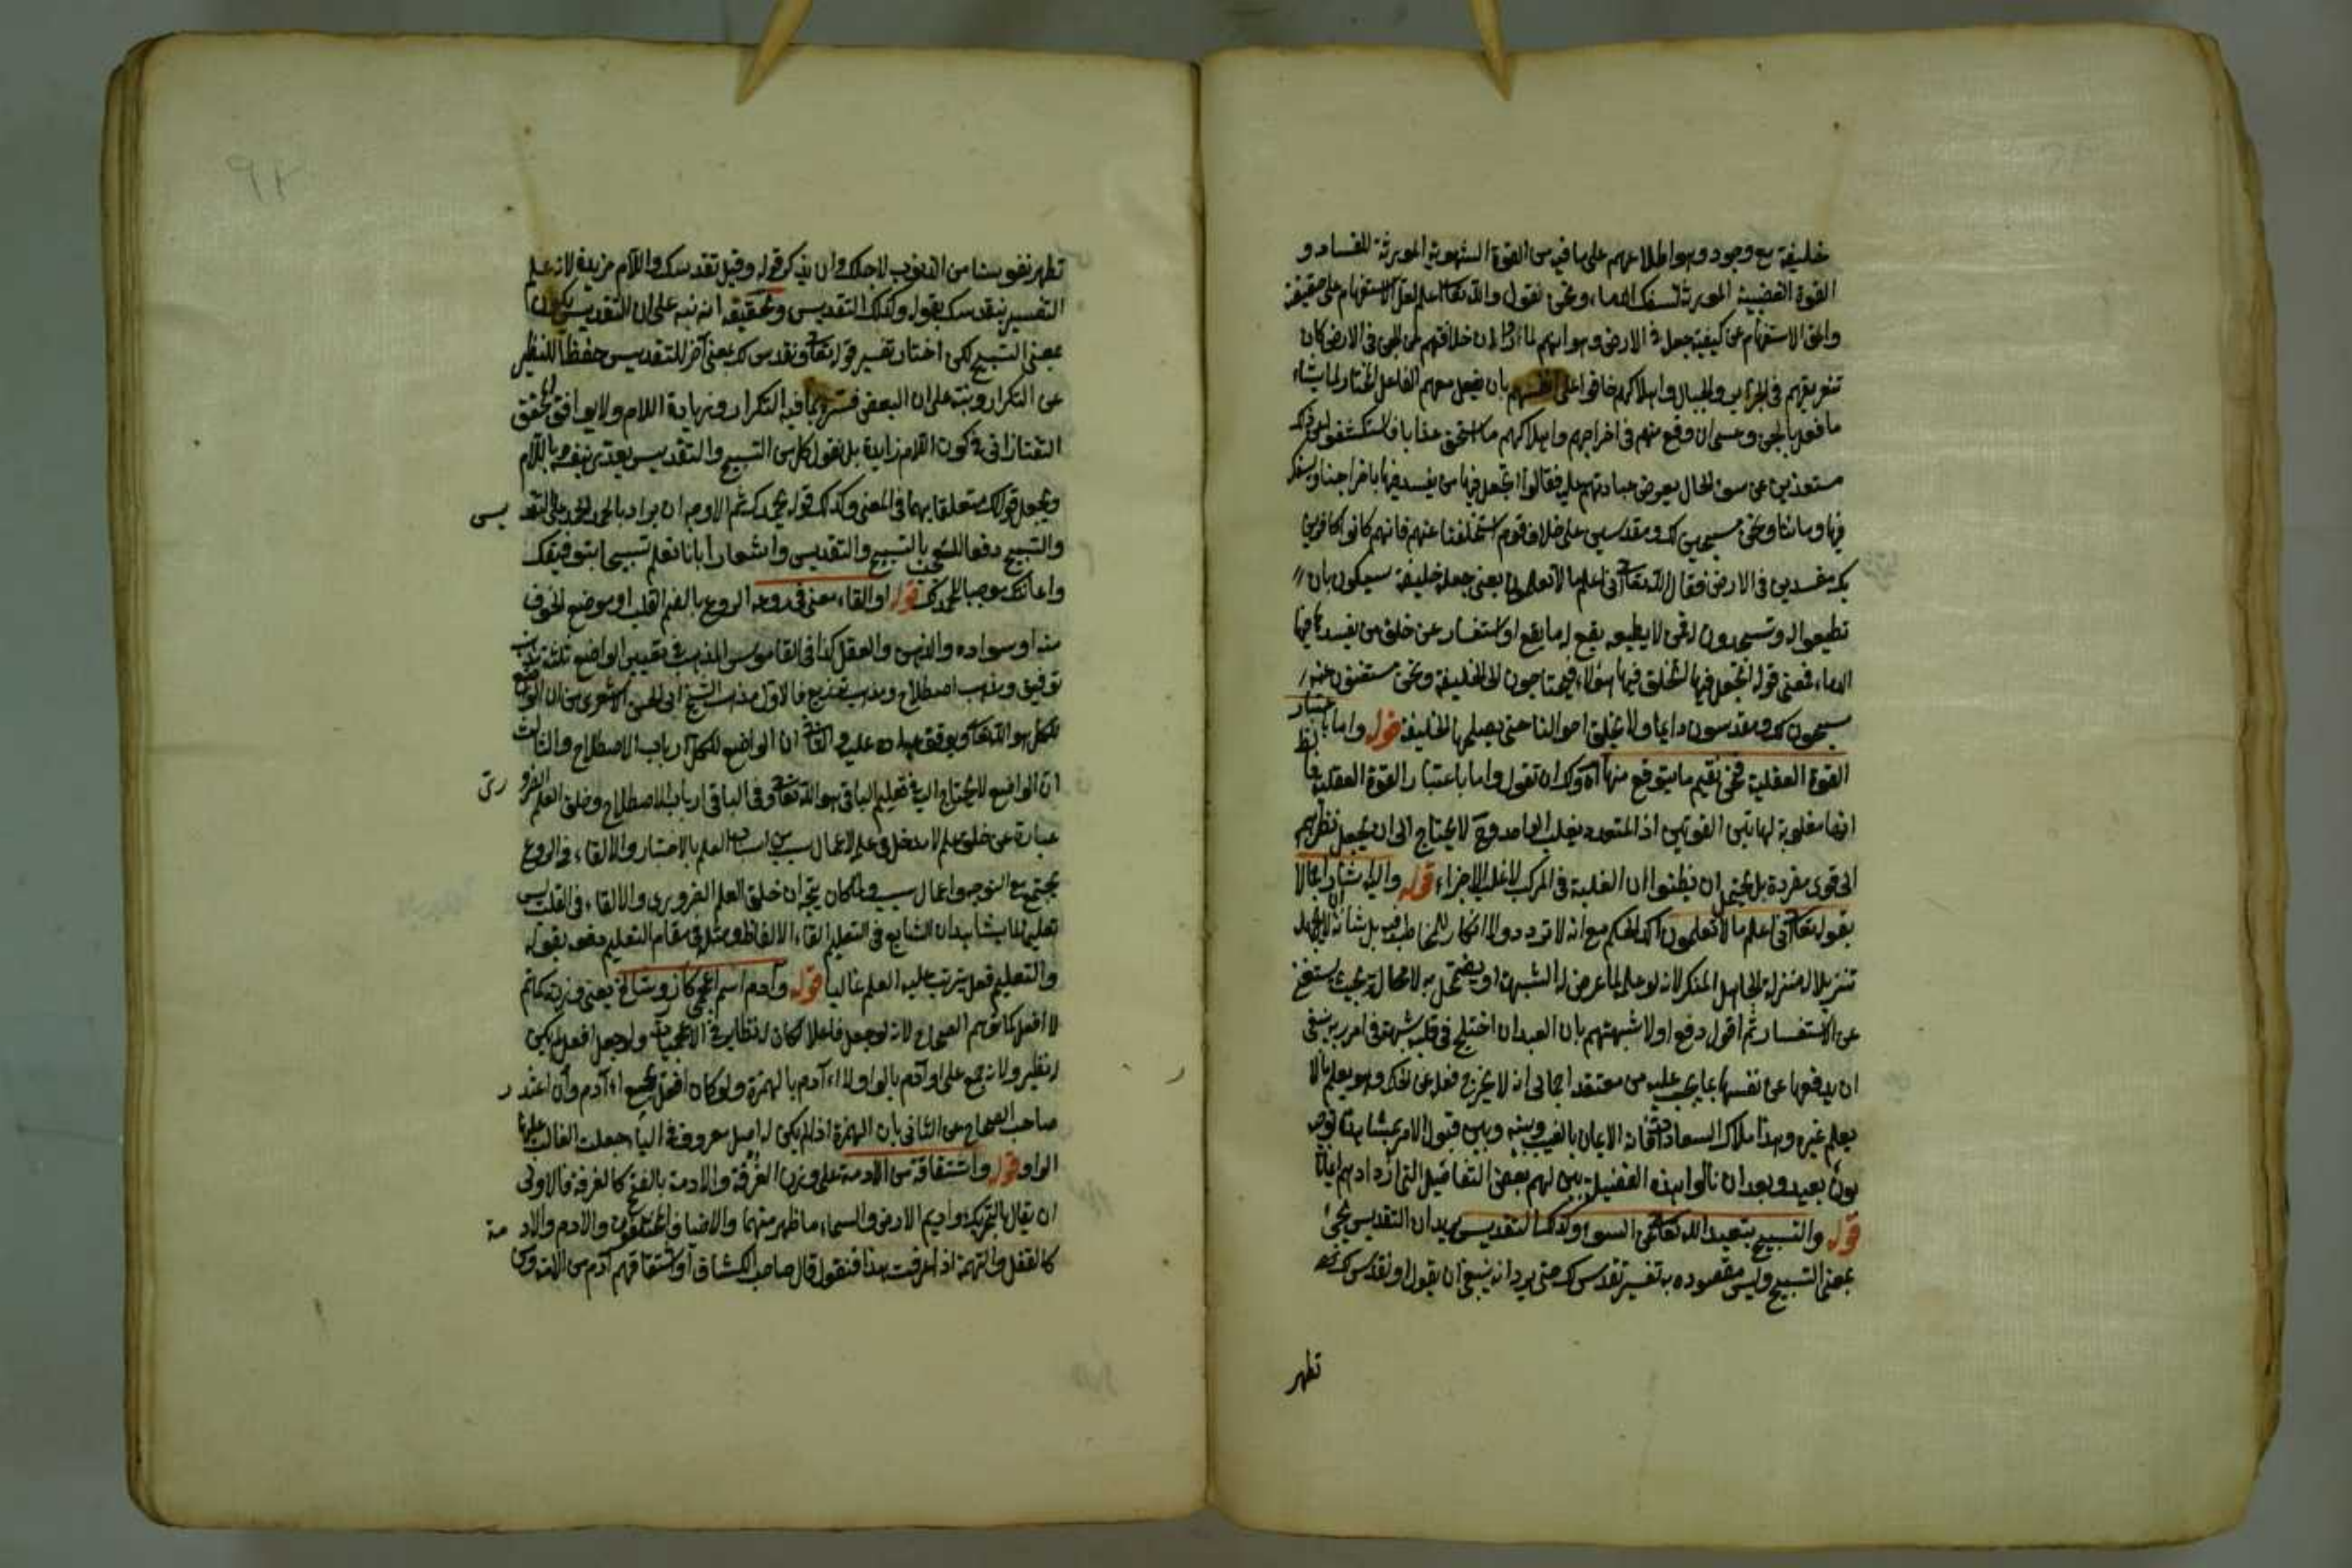 خليفة مع وجودهم واطلاعهم على ما فيه من القوة الشهوية المورثة للفساد و
القوة الغضبية المورثة لسفك الدماء ونحن نقول والله تعالى اعلم لعل الاستفهام على حقيقته
والحق الاستفهام عن كيفية جعل في الارض وهو انهم لما ان خلافتهم عن الجن في الارض كان
تفريقهم في الجزاير والجبال واهلاكهم خافوا على انفسهم بان يفعل معهم الفاعل المختار لما يشاء
ما فعل بالجن وعسى ان وقع منهم في اخراجهم واهلاكهم ما استحق عذابا فاستكشفوا
مستعذين عن سوء الحال بعرض عبادتهم عليه فقالوا اتجعل فيها من يفسد فيها باخراجنا ويسفك
فيها دمائنا ونحن مسبحين لك ومقدسين على خلاف قوم استخلفتنا عنهم فانهم كانوا كافرين
بك مفسدين في الارض فقال الله تعالى اني اعلم ما لا تعلمون يعني جعله خليفة سيكون بان
تطيعوا له وتسجدون له فمن لا يطيعه يقع له ما يقع او استفسار عن خلق من يفسد فيها
الدماء فمعنى قوله اتجعل فيها اتخلق فيها هؤلاء فيحتاجون الى الخليفة ونحن مستغنون عنه
مسبحون لك ومقدسون دايما ولا يختل احوالنا حتى يصلحها الخليفة قوله واما باعتبار
القوة العقلية فنحن نقيم ما يتوقع منها اه ولك ان تقول واما باعتبار القوة العقلية
انها مغلوبة لهاتين القوتين اذ المتعدد يغلب الواحد وح لا يحتاج الى ان يجعل نظرهم
الى قوى مفردة بل يحتمل ان يظنوا ان الغلبة في المركب لاغلب الاجزاء قوله واليه اشار اجمالا
بقوله تعالى اني اعلم ما لا تعلمون اكد الحكم مع انه لا تردد ولا انكار للمخاطب فيه بل شانه ان لا يجهل
تنزيلا له منزلة الجاهل المنكر لانه لو علم لما عرض له الشبهة او يضمحل به لا محالة بحيث يستغنى
عن الاستفسار ثم اقول دفع اولا شبهتهم بان العبد ان اختلج في قلبه شبهة في امر ربه ينبغي
ان يدفعها عن نفسه بما يجب عليه من معتقد اجمالي انه لا يخرج فعله عن الحكم وهو يعلم ما لا
يعلم غيره وهذا ملاك السعادة فانه الايمان بالغيب وبينه وبين قبول الامر بمشاهدة
بون بعيد وبعد ان نالوا بهذه الفضيلة بين لهم بعض التفاصيل التي ازدادهم ايمانا
قوله والتسبيح تبعيد الله تعالى عن السوء وكذلك التقديس يريد ان التقديس يجيء
بمعنى التسبيح وليس مقصوده به تفسير نقدس لك حتى يرد انه ينبغي ان يقول او نقدس لك
تطهر
٩٢
تطهر نفوسنا من الذنوب لاجلك وان يذكر قوله وقيل نقدسك واللام مزيدة لانه علم
التفسير بنقدسك بقوله وكذلك التقديس وتحقيقه انه نبه على ان التقديس يكون
بمعنى التسبيح لكن اختار تفسير قوله تعالى ونقدس لك بمعنى آخر للتقديس حفظا للنظم
عن التكرار ونبه على ان البعض فسره بما فيه التكرار وزيادة اللام ولا يوافق المحقق
التفتازاني في كون اللام زايدة بل نقول كل من التسبيح والتقديس يعدى بنفسه وباللام
ويجعل قوله لك متعلقا بهما في المعنى وكذلك قوله بحمدك ثم الاوجه ان يراد بالحمد الحمد على التقديس
والتسبيح دفعا للعجب بالتسبيح والتقديس واشعارا بانا نعلم تسبيحنا بتوفيقك
واعانتك موجبا لحمدك قوله او القاء معنى في روعه الروع بالضم القلب او موضع الخوف
منه او سواده والذهن والعقل كذا في القاموس المذهب في تعيين الواضع ثلثة مذهب
توقيف ومذهب اصطلاح ومذهب توزيع فالاول مذهب الشيخ ابي الحسن الاشعري من ان الواضع
للكل هو الله تعالى ويوقف عباده عليه والثاني ان الواضع للكل ارباب الاصطلاح والثالث
ان الواضع للمحتاج اليه في تعليم الباقي هو الله تعالى وفي الباقي ارباب الاصطلاح وخلق العلم الضروري
عبارة عن خلق علم لا مدخل فيه لاعمال سبب من اسباب العلم بالاختيار والالقاء في الروع
يجتمع مع التوجه واعمال سبب ولما كان يتجه ان خلق العلم الضروري والالقاء في القلب ليس
تعليما لما يشاهد ان الشايع في التعليم القاء الالفاظ ومثله في مقام التعليم دفعه بقوله
والتعليم فعل يترتب عليه العلم غالبا قوله وآدم اسم اعجمي كآزر وشالخ يعني وزنه كخاتم
لا افعل كما توهم الصحاح لانه لو جعل فاعلا لكان له نظاير في الاعجميات ولو جعل افعل لم يكن
له نظير ولانه جمع على اوادم بالواو لا أآدم بالهمزة ولو كان افعل لجمع أآدم وان اعتذر
صاحب الصحاح عن الثاني بان الهمزة اذا لم يكن له اصل معروف في الياء جعلت الغالب عليها
الواو قوله واشتقاقه من الادمة على وزن الغرفة والادمة بالفتح كالغرفة فالاولى
ان يقال بالتحريك واديم الارض والسماء ما ظهر منهما والاضياف مختلفون والادم والادمة
كالقفل والتهمة اذا عرفت هذا فنقول قال صاحب الكشاف واشتقاقهم آدم من الادمة ومن